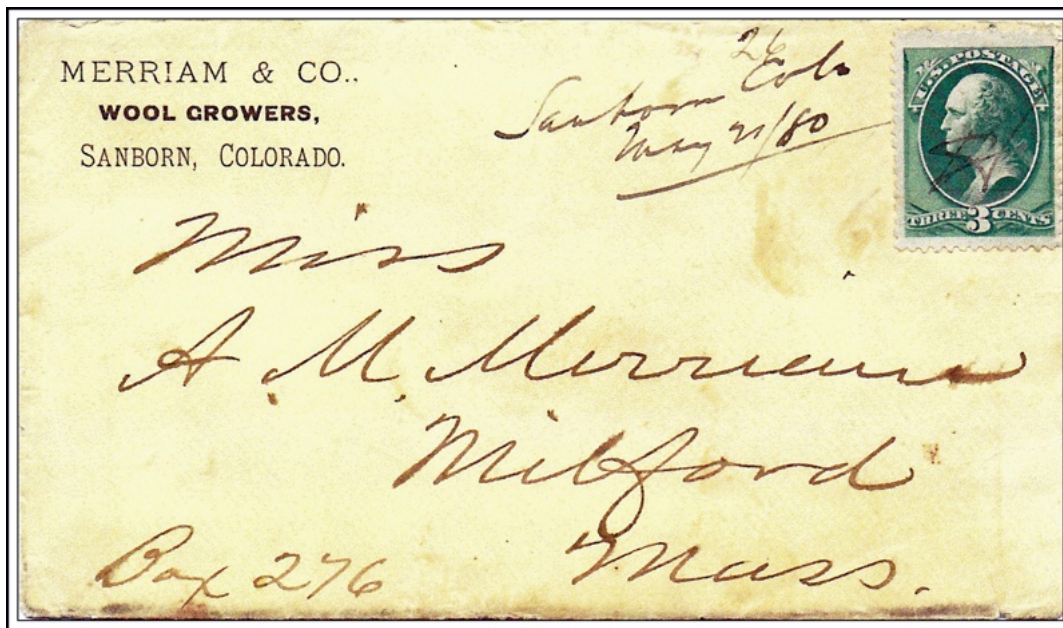 MERRIAM & CO.,
WOOL GROWERS,
SANBORN, COLORADO.
26
Sanborn Colo
May 21/80
U.S. POSTAGE
THREE 3 CENTS
Miss
A. M. Merriam
Milford
Mass.
Box 276